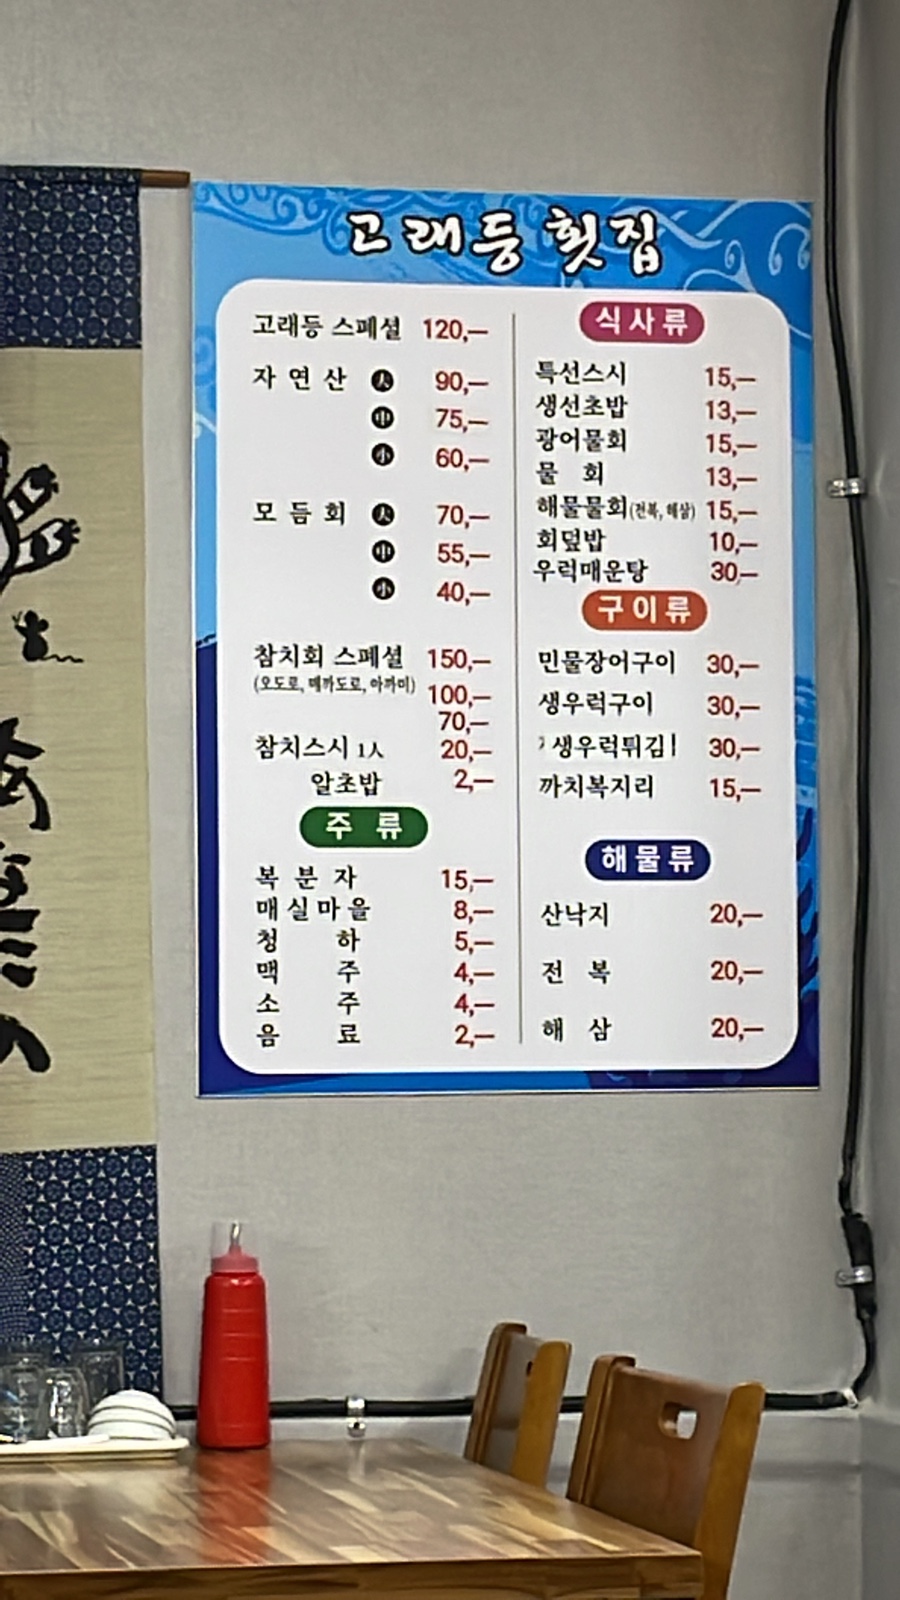 고래등 횟집
고래등 스페셜 120,—
자연산 大 90,—
中 75,—
小 60,—
모듬회 大 70,—
中 55,—
小 40,—
참치회 스페셜 150,—
(오도로, 메까도로, 아까미) 100,—
70,—
참치스시 1人 20,—
알초밥 2,—
주 류
복 분 자 15,—
매실마을 8,—
청 하 5,—
맥 주 4,—
소 주 4,—
음 료 2,—
식사류
특선스시 15,—
생선초밥 13,—
광어물회 15,—
물 회 13,—
해물물회(전복, 해삼) 15,—
회덮밥 10,—
우럭매운탕 30,—
구이류
민물장어구이 30,—
생우럭구이 30,—
생우럭튀김 30,—
까치복지리 15,—
해물류
산낙지 20,—
전 복 20,—
해 삼 20,—